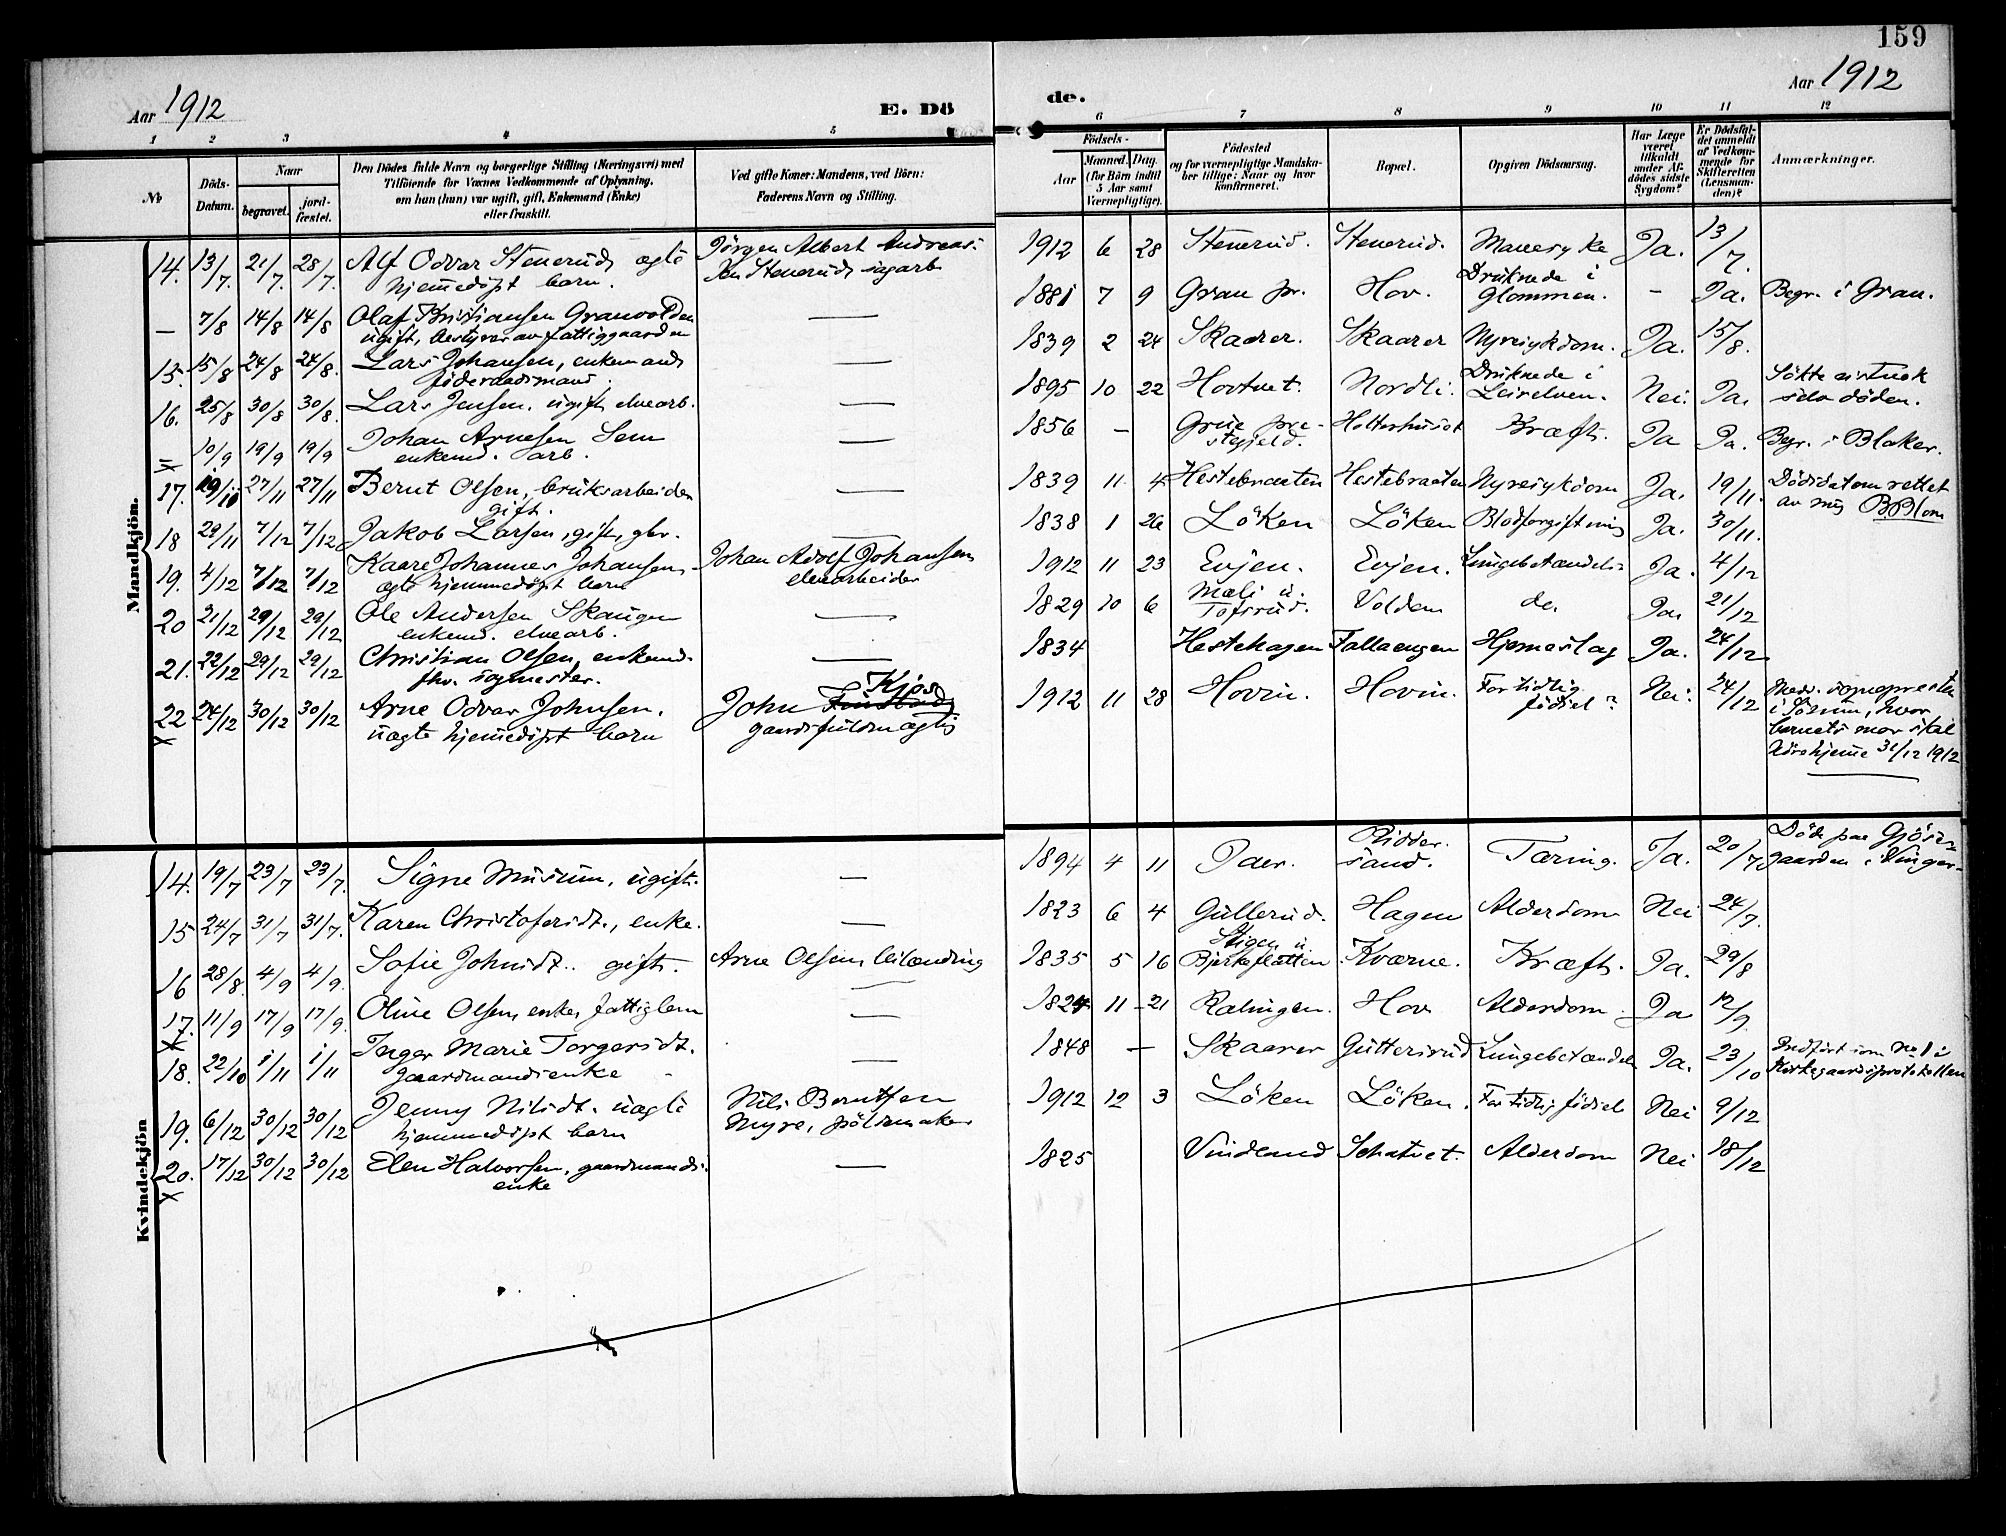 159
Aar 1912
E. Dö
de.
Aar 1912
1 2 3 4 5 6 7 8 9 10 11 12
No
Döds-
Datum.
Naar
begravet.
jord-
fæstet.
Den Dödes fulde Navn og borgerlige Stilling (Næringsvei) med
Tilföiende for Voxnes Vedkommende af Oplysning,
om han (hun) var ugift, gift, Enkemand (Enke)
eller fraskilt.
Ved gifte Koner: Mandens, ved Börn:
Faderens Navn og Stilling.
Födsels-
Aar
Maaned. Dag.
(for Börn indtil
5 Aar samt
Værnepligtige).
Födested
og for værnepligtige Mandska-
ber tillige: Naar og hvor
konfirmeret.
Bopæl.
Opgiven Dödsaarsag.
Har Læge
været
tilkaldt
under Af-
dödes sidste
Sygdom?
Er Dödsfal-
det anmeldt
af Vedkom-
mende for
Skifteretten
(Lensman-
den)?
Anmærkninger.
Mandkjön.
14. 13/7 21/7 28/7 Alf Odvar Stenerud, ægte Jörgen Albert Andreas- 1912 6 28 Stenerud. Stenerud. Mavesyke Ja. 13/7.
hjemmedöpt barn. sen Stenerud, sagarb.
— 7/8 14/8 14/8 Olaf Kristiansen Granvolden — 1881 7 9 Gran pr. Hov. Druknede i Glommen. - Ja. Begr. i Gran.
ugift, bestyrer av fattiggaarden
15. 15/8 24/8 24/8. Lars Johansen, enkemand — 1839 2 24 Skaarer. Skaarer Nyresykdom. Ja. 15/8.
föderaadsmand.
16. 25/8 30/8 30/8. Lars Jensen, ugift, elvearb. — 1895 10 22 Hovtvet. Nordli. Druknede i Leirelven. Nei. Ja. Sökte
selv döden.
— 10/9 19/9 19/9 Johan Arnesen Sem — 1856 - Grue pre- stegjeld. Kræft. Ja Ja. Begr. i Blaker.
enkemd. arb.
17. 19/11 27/11 27/11 Bernt Olsen, bruksarbeider — 1839 11 4 Hestebraaten Hestebraaten Nyresykdom Ja. 19/11. Dödsdatum rettet
gift. av mig BBlom
18 28/11 7/12 7/12 Jakob Larsen, gift, gbr. — 1838 1 26 Löken Löken Blodforgiftning Ja. 30/11.
19. 4/12 7/12 7/12 Kaare Johannes Johansen, Johan Adolf Johansen 1912 11 23 Evjen. Evjen. Lungebetændels: Ja. 4/12
ægte hjemmedöpt barn elvearbeider
20 21/12 29/12 29/12 Ole Andersen Skaugen — 1829 10 6 Mæli u. Tofsrud. Volden do. Ja. 21/12
enkemd. elvearb.
21. 22/12 29/12 29/12 Christian Olsen, enkemd. — 1834 Hestehagen Fallaengen Hjerneslag Ja. 24/12
fhv. sagmester.
22 24/12 30/12 30/12 Arne Odvar Johnsen. John Kjos 1912 11 28 Hovin. Hovin. For tidlig födsel? Nei. 24/12 Medd. sogneprester
uægte hjemmedöpt barn gaardsfuldmægtig i Sörum, hvor
barnets mor skal
höre hjemme 31/12 1912
Kvindekjön
14. 19/7 23/7 23/7. Signe Musum, ugift. — 1894 4 11 Paer. Ridder- sand. Tæring. Ja. 20/7 Döde paa Gjös-
gaarden i Vinger
15 24/7 31/7 31/7. Karen Christofersdt., enke. — 1823 6 4 Gullerud. Hagen Alderdom Nei 24/7.
16 28/8. 4/9 4/9. Sofie Johnsdt. gift. Arne Olsen, leilænding 1835 5 16 Stigen u. Bjerkeflatten Kværne. Kræft. Ja. 29/8
17. 11/9 17/9 17/9. Oline Olsen, enke, fattiglem — 1824 11 21 Ralingen. Hov Alderdom. Ja 12/9
18. 22/10 1/11 1/11 Inger Marie Torgersdt. — 1848 — Skaarer Guttersrud Lungebetændelse Ja. 23/10 Indfört som No 1 i
gaardmandsenke Kirkegaardsprotokollen
19. 6/12 30/12 30/12 Jenny Nilsdt. uægte Nils Berntsen 1912 12 3 Löken Löken. For tidlig födsel Nei 9/12
hjemmedöpt barn Myre, pölsemaker
20. 17/12 30/12 30/12 Elen Halvorsen, gaardmands- — 1825 Vindlund Schatvet. Alderdom Nei 18/12
enke